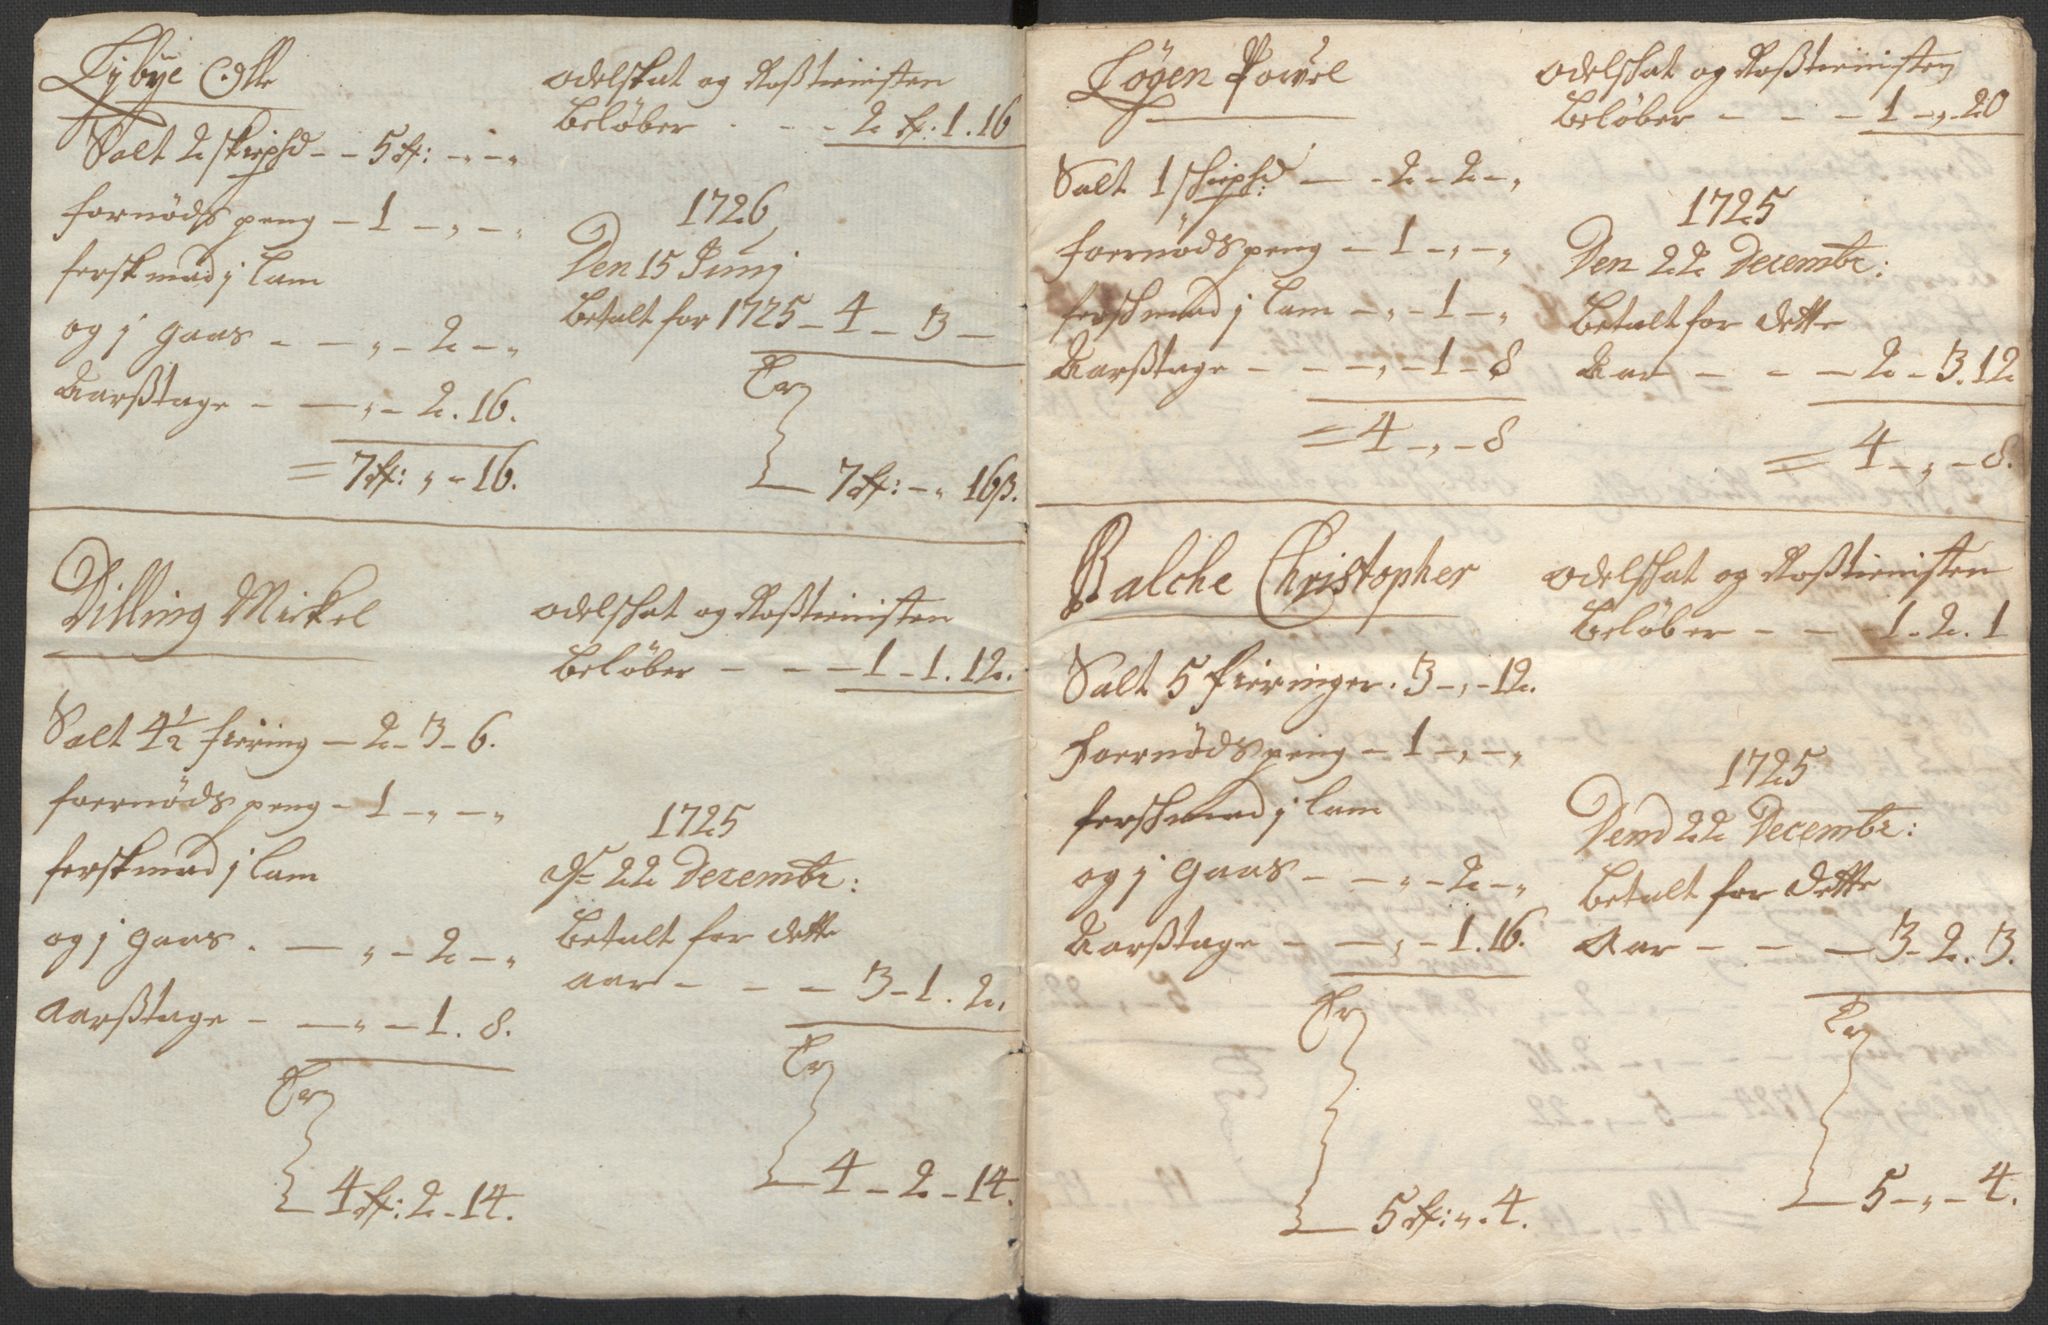 Lybye Olle
Salt 2 skiphd - - 5 rf: -,-,
fornøds peng - 1 -,-,
fersk mad j lam
og j gaas - - , - 2 - ,
Aarßtage - - , - 2. 16.
= 7 rf: , - 16.
odelskat og Roßtienisten
beløber . - - 2 rf: 1. 16
1726
Den 15 Junj
betalt for 1725 - 4 - 3 -
Er
7 rf: - , 16 ß.
Dilling Mickel
Salt 4½ fiering - 2 - 3 - 6.
foernøds peng - 1 - , - ,
fersk mad j lam
og j gaas . - , - 2 - ,
Aarßtage - - , - 1. 8.
Er
4 rf: 2 - 14.
odelschat og Roßtienisten
beløber - - - 1 - 1. 12.
1725
d 22 Decembr:
betalt for dette
aar - - - 3 - 1. 2.
Er
4 - 2 - 14.
Løgen Powel
Salt 1 schiphd: - - 2 - 2 - ,
foernøds peng - 1 - , - ,
fersch mad j lam - , - 1 - ,
Aarßtage - - - , - 1 - 8
= 4 - , - 8
odelschat og Roßtienisten
beløber - - - 1 - , - 20
1725
Den 22 Decembr:
betalt for dette
Aar - - - 2 - 3. 12
= 4 - , - 8.
Balche Christopher
Salt 5 fieringer. 3 - , - 12.
foernøds peng - 1 - , - ,
fersch mad j lam
og j gaas - - , - 2 - ,
Aarßtage - - , - 1. 16.
Er
5 rf: , . 4.
odelschat og Roßtienisten
beløber - - 1 - 2. 1
1725
Dend 22 Decembr:
betalt for dette
Aar - - - 3 - 2. 3.
Er
5 - , - 4.